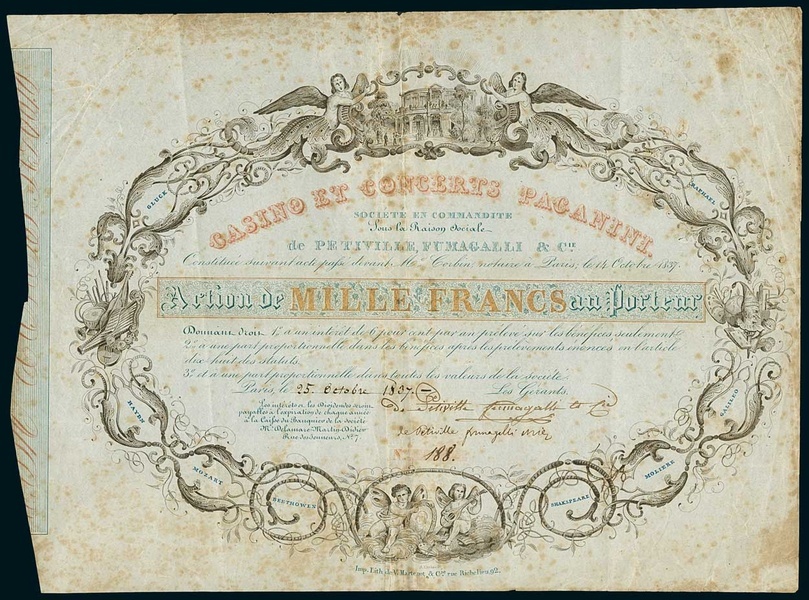 CASINO ET CONCERTS PAGANINI.
SOCIÉTÉ EN COMMANDITE
Sous la Raison Sociale
de PETIVILLE, FUMAGALLI & Cie
Constituée suivant acte passé devant Me Corbin, notaire à Paris, le 14 Octobre 1837.
Action de MILLE FRANCS au Porteur
Donnant droit 1° à un intérêt de 6 pour cent par an prélevé sur les bénéfices seulement
2° à une part proportionnelle dans les bénéfices après les prélèvements énoncés en l'article
dix-huit des statuts.
3° et à une part proportionnelle dans toutes les valeurs de la société.
Paris, le 25 Octobre 1837.
Les Gérants,
De Petiville fumagalli et Cie
de Petiville fumagalli
Les intérêts et les dividendes seront
payables à l'expiration de chaque année
à la Caisse du Banquier de la Société
Mr Delamarre Martin Didier
Rue des Jeuneurs, No 7.
No 188.
GLUCK
RAPHAEL
HAYDN
GALILEO
MOZART
MOLIERE
BEETHOWEN
SHAKSPEARE
Imp. Lith. de V. & Cie rue Richelieu, 92.